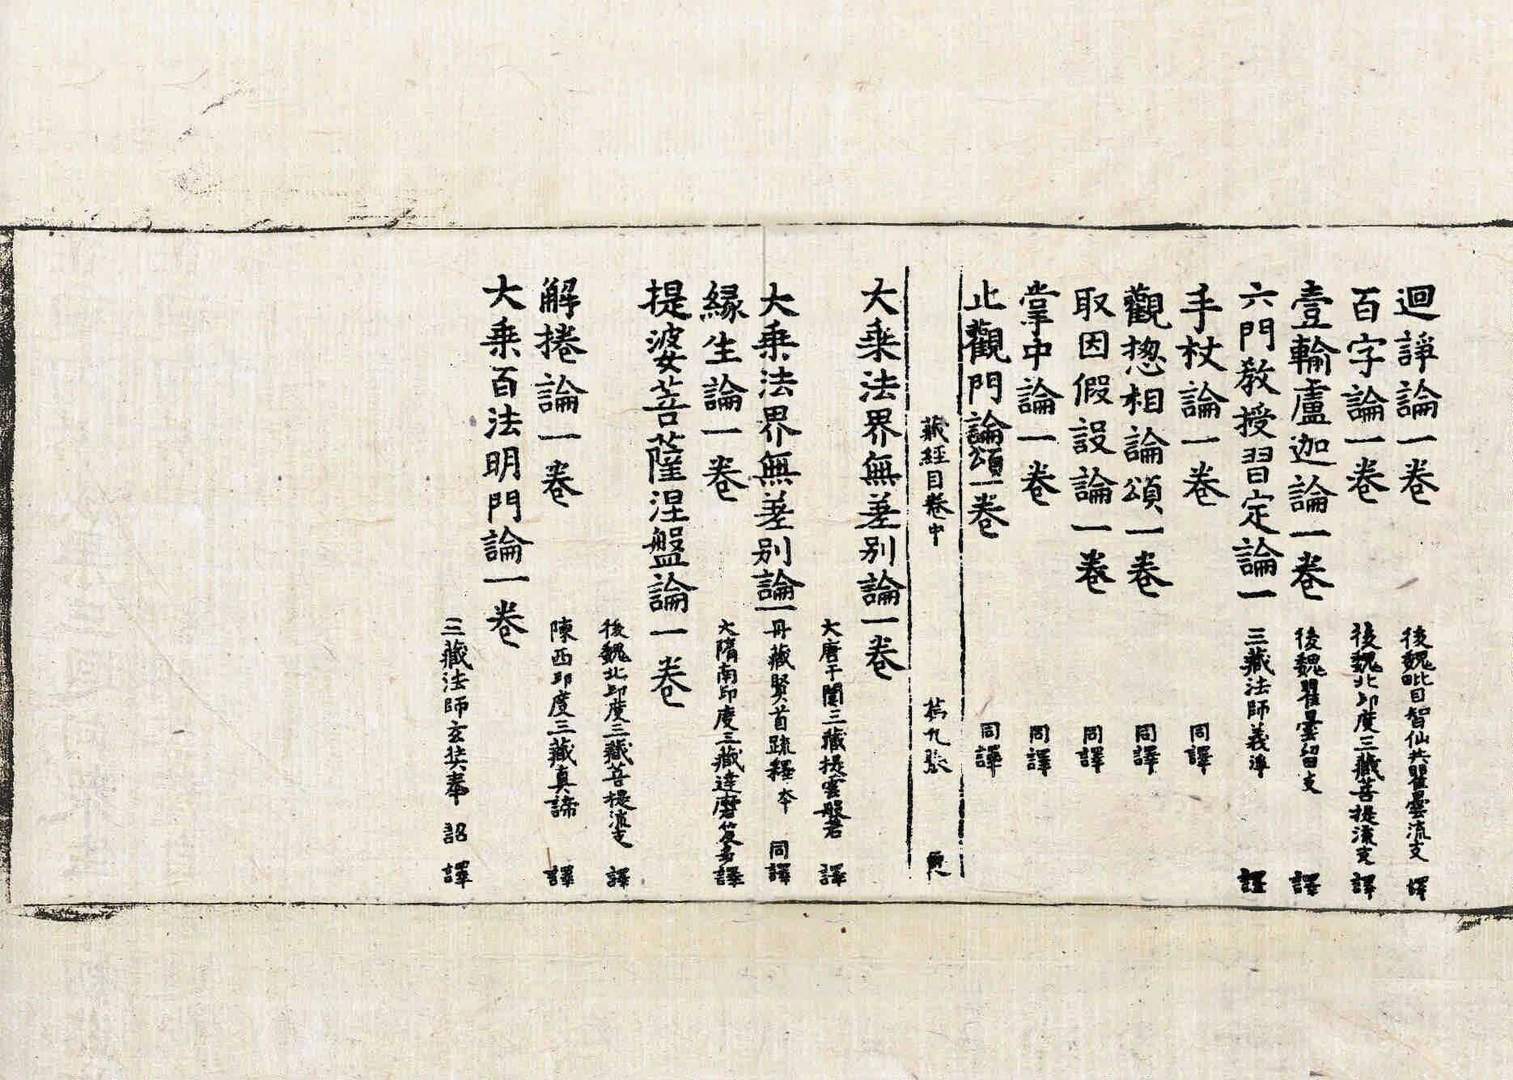 迴諍論一卷 後魏毗目智仙共瞿曇流支 譯
百字論一卷 後魏北印度三藏菩提流支 譯
壹輸盧迦論一卷 後魏瞿曇留支 譯
六門教授習定論一 三藏法師義淨 譯
手杖論一卷 同譯
觀惣相論頌一卷 同譯
取因假設論一卷 同譯
掌中論一卷 同譯
止觀門論頌一卷 同譯
藏經目卷中 苐九張
大乘法界無差別論一卷 大唐于闐三藏提雲般若 譯
大乘法界無差別論一 丹藏賢首䟽釋夲 同譯
緣生論一卷 大隋南印度三藏達磨笈多譯
提婆菩薩涅盤論一卷 後魏北印度三藏菩提流支 譯
解捲論一卷 陳西印度三藏真諦 譯
大乘百法明門論一卷 三藏法師玄奘奉 詔 譯